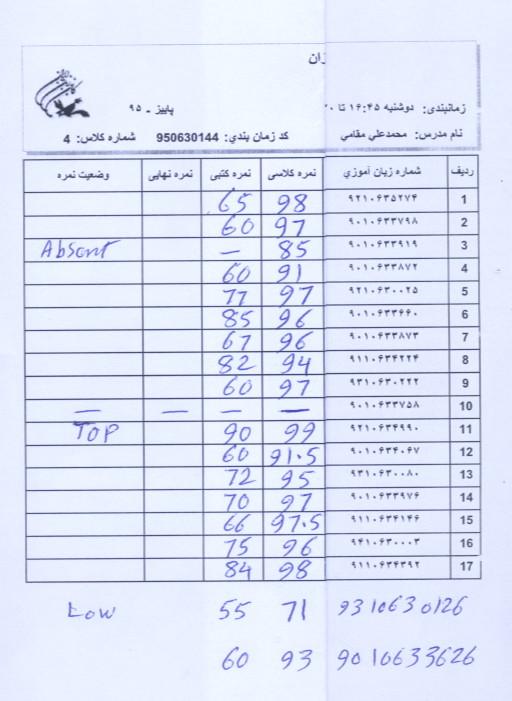 زان
زمانبندی: دوشنبه ۱۶:۴۵ تا ۲۰ پاییز ـ ۹۵
نام مدرس: محمدعلي مقامي کد زمان بندي: 950630144 شماره کلاس: 4
رديف شماره زبان آموزي نمره کلاسی نمره کتبی نمره نهایی وضعیت نمره
1 ۹۲۱۰۶۳۵۲۷۴ 98 65
2 ۹۰۱۰۶۳۳۷۹۸ 97 60
3 ۹۰۱۰۶۳۳۹۱۹ 85 — Absent
4 ۹۰۱۰۶۳۳۸۷۲ 91 60
5 ۹۲۱۰۶۳۰۰۲۵ 97 77
6 ۹۰۱۰۶۳۳۶۶۰ 96 85
7 ۹۰۱۰۶۳۳۸۷۳ 96 67
8 ۹۱۱۰۶۳۴۲۲۴ 94 82
9 ۹۳۱۰۶۳۰۲۲۲ 97 60
10 ۹۰۱۰۶۳۳۷۵۸ — — — —
11 ۹۲۱۰۶۳۴۹۹۰ 99 90 TOP
12 ۹۰۱۰۶۳۴۰۶۷ 91.5 60
13 ۹۳۱۰۶۳۰۰۸۰ 95 72
14 ۹۰۱۰۶۳۳۹۷۶ 97 70
15 ۹۱۱۰۶۳۴۱۴۶ 97.5 66
16 ۹۴۱۰۶۳۰۰۰۳ 96 75
17 ۹۱۱۰۶۳۴۳۹۲ 98 84
9310630126 71 55 Low
9010633626 93 60